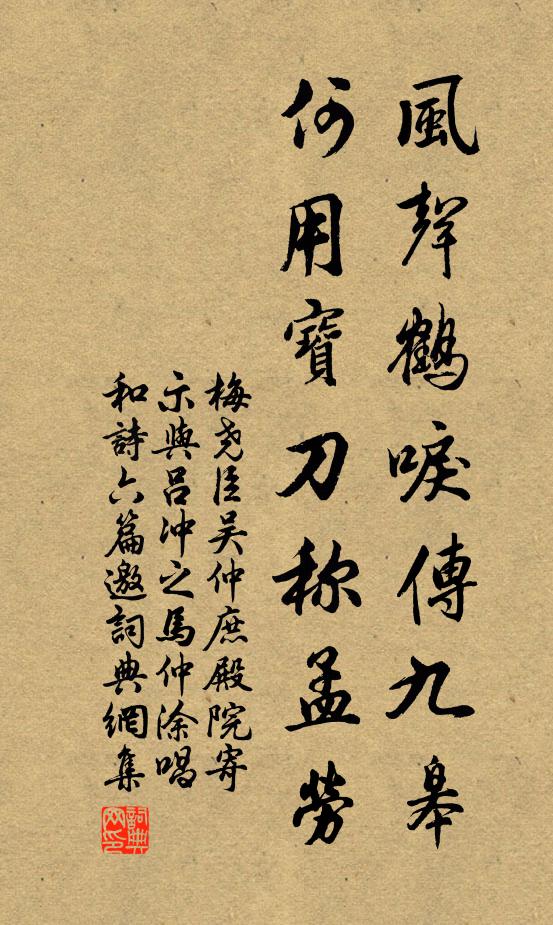 風聲鶴唳傳九皋
何用寶刀称孟勞
梅尧臣吴仲庶殿院寄
示與呂沖之馬仲涂唱
和詩六篇邀詞典網集
詞典
网印